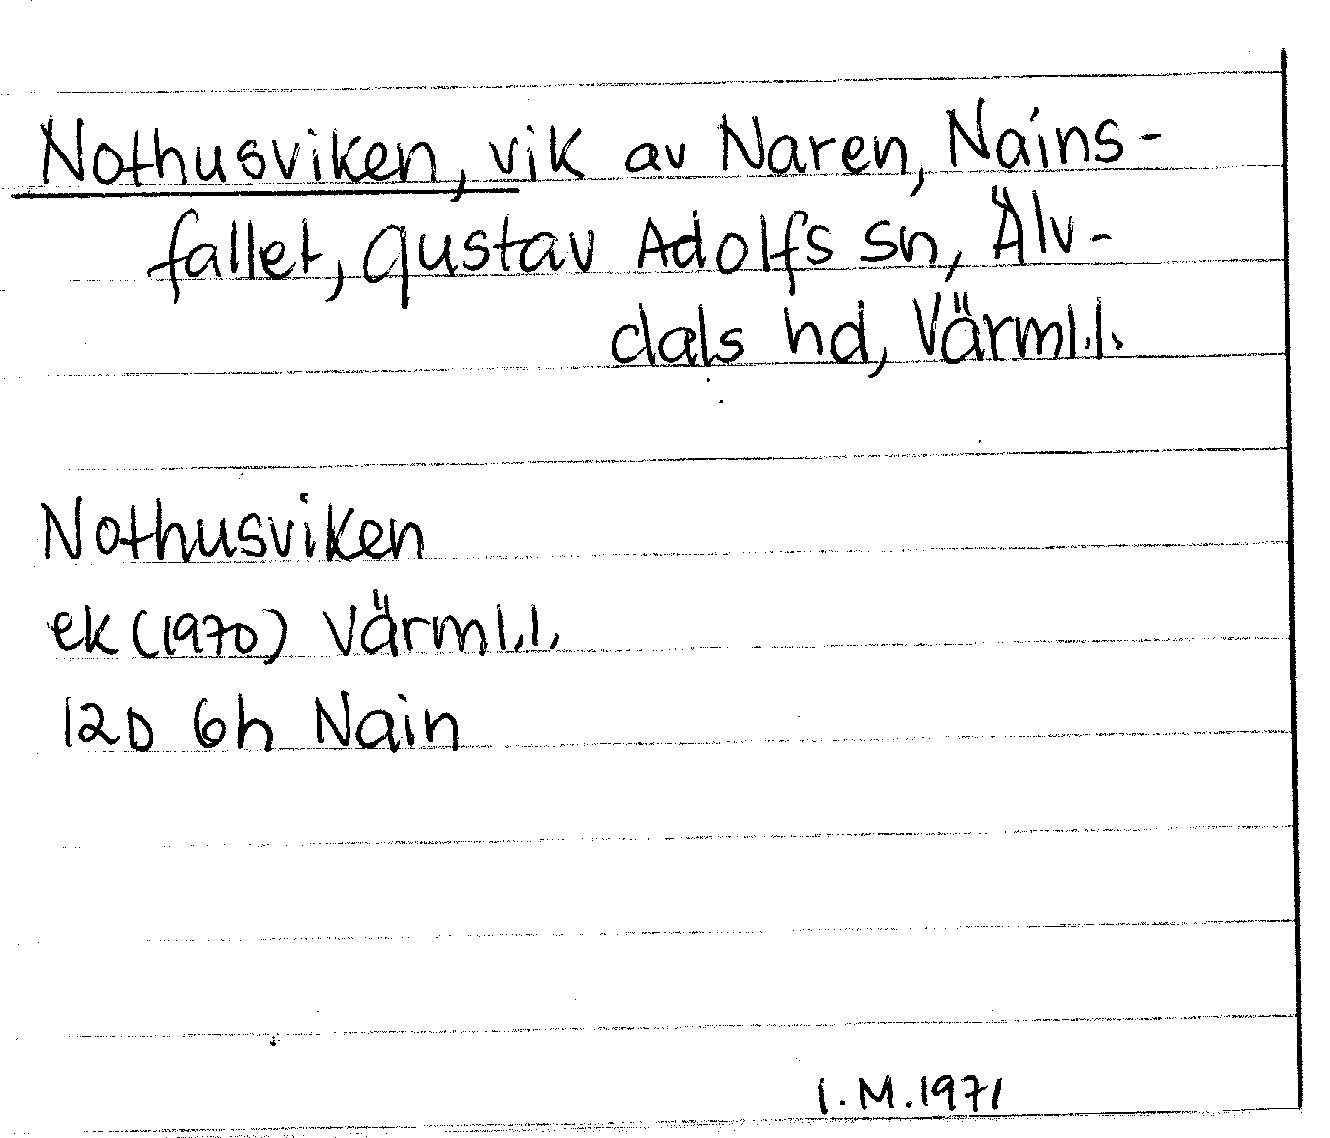 Nothusviken, vik av Naren, Nains-
fallet, Gustav Adolfs sn, Älv-
dals hd, Värml.l.
Nothusviken
ek (1970) Värml.l.
12D 6h Nain
I.M.1971